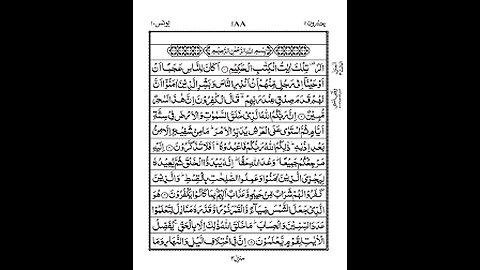 يعتذرون ۱۱
۱۸۸
يونس ۱۰
بِسْمِ اللّٰهِ الرَّحْمٰنِ الرَّحِيْمِ
الٓرٰ ۚ تِلْكَ اٰيٰتُ الْكِتٰبِ الْحَكِيْمِ ۝ اَكَانَ لِلنَّاسِ عَجَبًا اَنْ
اَوْحَيْنَاۤ اِلٰى رَجُلٍ مِّنْهُمْ اَنْ اَنْذِرِ النَّاسَ وَبَشِّرِ الَّذِيْنَ اٰمَنُوْۤا اَنَّ
لَهُمْ قَدَمَ صِدْقٍ عِنْدَ رَبِّهِمْ ؕ قَالَ الْكٰفِرُوْنَ اِنَّ هٰذَا لَسٰحِرٌ
مُّبِيْنٌ ۝ اِنَّ رَبَّكُمُ اللّٰهُ الَّذِيْ خَلَقَ السَّمٰوٰتِ وَالْاَرْضَ فِيْ سِتَّةِ
اَيَّامٍ ثُمَّ اسْتَوٰى عَلَى الْعَرْشِ يُدَبِّرُ الْاَمْرَ ؕ مَا مِنْ شَفِيْعٍ اِلَّا مِنْۢ
بَعْدِ اِذْنِهٖ ؕ ذٰلِكُمُ اللّٰهُ رَبُّكُمْ فَاعْبُدُوْهُ ؕ اَفَلَا تَذَكَّرُوْنَ ۝ اِلَيْهِ
مَرْجِعُكُمْ جَمِيْعًا ؕ وَعْدَ اللّٰهِ حَقًّا ؕ اِنَّهٗ يَبْدَؤُا الْخَلْقَ ثُمَّ يُعِيْدُهٗ
لِيَجْزِيَ الَّذِيْنَ اٰمَنُوْا وَعَمِلُوا الصّٰلِحٰتِ بِالْقِسْطِ ؕ وَالَّذِيْنَ
كَفَرُوْا لَهُمْ شَرَابٌ مِّنْ حَمِيْمٍ وَّعَذَابٌ اَلِيْمٌۢ بِمَا كَانُوْا يَكْفُرُوْنَ ۝ هُوَ
الَّذِيْ جَعَلَ الشَّمْسَ ضِيَآءً وَّالْقَمَرَ نُوْرًا وَّقَدَّرَهٗ مَنَازِلَ لِتَعْلَمُوْا
عَدَدَ السِّنِيْنَ وَالْحِسَابَ ؕ مَا خَلَقَ اللّٰهُ ذٰلِكَ اِلَّا بِالْحَقِّ ۚ يُفَصِّلُ
الْاٰيٰتِ لِقَوْمٍ يَّعْلَمُوْنَ ۝ اِنَّ فِي اخْتِلَافِ الَّيْلِ وَالنَّهَارِ وَمَا
منزل ۳